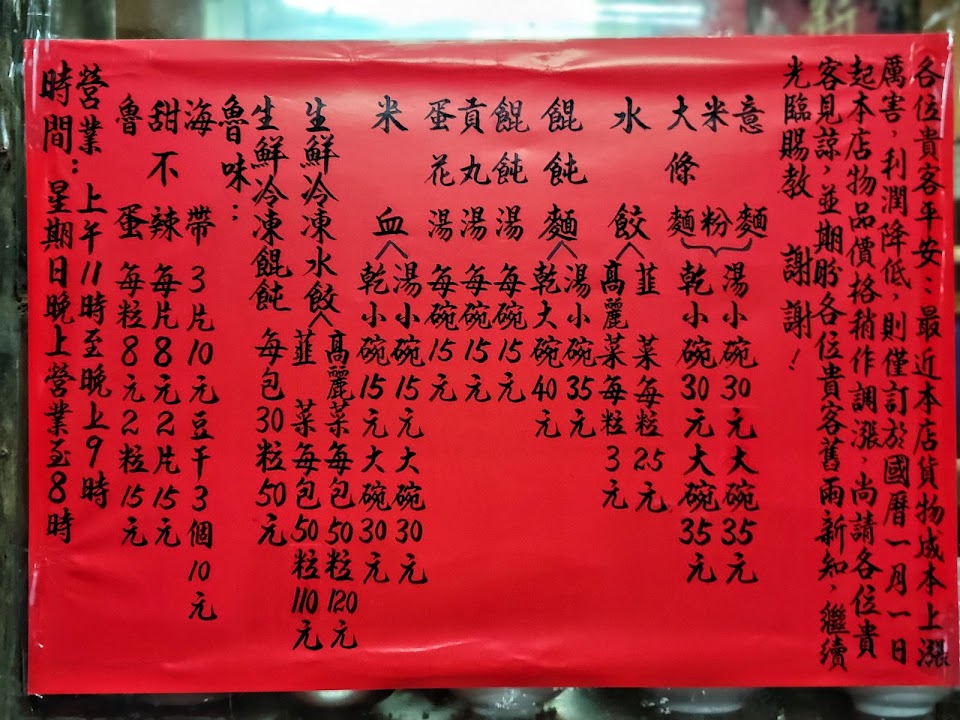 各位貴客平安:最近本店貨物成本上漲
厲害,利潤降低,則僅訂於國曆一月一日
起本店物品價格稍作調漲,尚請各位貴
客見諒,並期盼各位貴客舊雨新知,繼續
光臨賜教 謝謝!
意麵
米粉
大條麵
湯小碗30元大碗35元
乾小碗30元大碗35元
水餃
韮菜每粒2.5元
高麗菜每粒3元
餛飩麵
湯小碗35元
乾大碗40元
餛飩湯每碗15元
貢丸湯每碗15元
蛋花湯每碗15元
米血
湯小碗15元大碗30元
乾小碗15元大碗30元
生鮮冷凍水餃
高麗菜每包50粒120元
韮菜每包50粒110元
生鮮冷凍餛飩每包30粒50元
魯味:
海帶3片10元豆干3個10元
甜不辣每片8元2片15元
魯蛋每粒8元2粒15元
營業 上午11時至晚上9時
時間:星期日晚上營業至8時